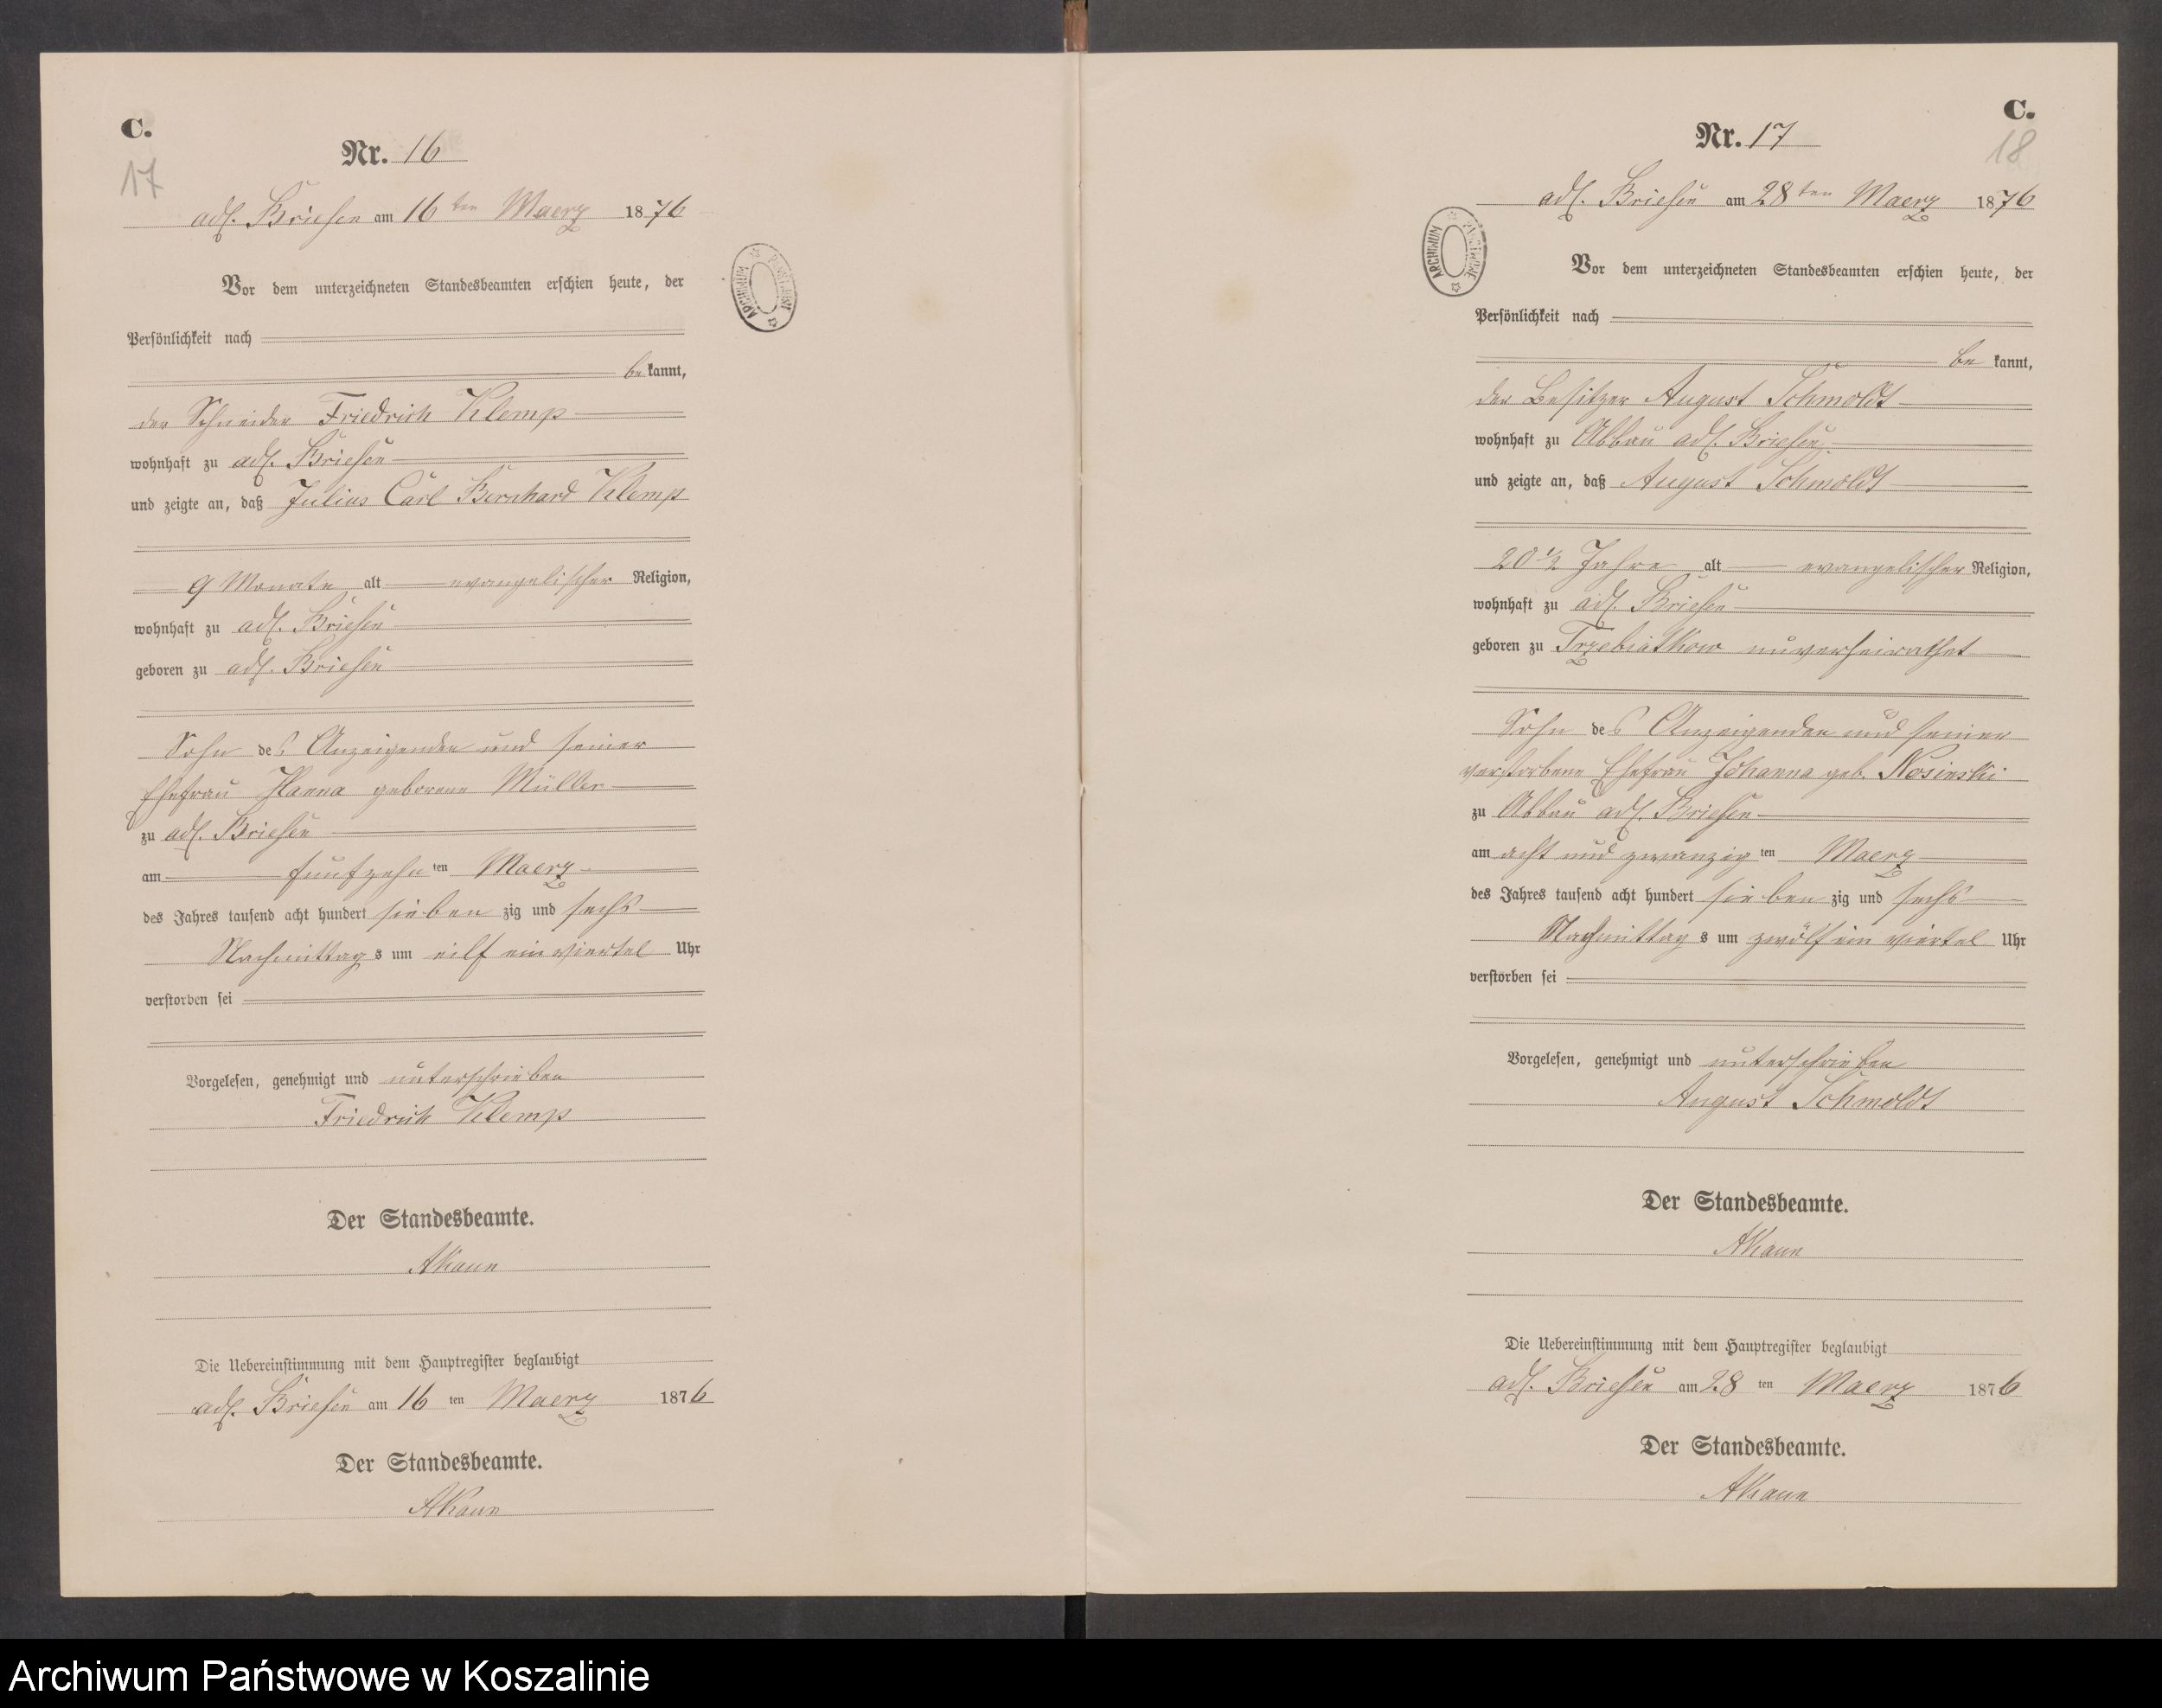 C.
17
Nr. 16
adl. Briesen am 16 ten Maerz 1876
Vor dem unterzeichneten Standesbeamten erschien heute, der
Persönlichkeit nach
bekannt,
der Schneider Friedrich Klemp
wohnhaft zu adl. Briesen
und zeigte an, daß Julius Carl Bernhard Klemp
9 Monate alt evangelischer Religion,
wohnhaft zu adl. Briesen
geboren zu adl. Briesen
Sohn des Anzeigenden und seiner
Ehefrau Hanna geborene Müller
zu adl. Briesen
am funfzehn ten Maerz
des Jahres tausend acht hundert sieben zig und sechs
Nachmittags um eilf ein viertel Uhr
verstorben sei
Vorgelesen, genehmigt und unterschrieben
Friedrich Klemp
Der Standesbeamte.
AKaun
Die Uebereinstimmung mit dem Hauptregister beglaubigt
adl. Briesen am 16 ten Maerz 1876
Der Standesbeamte.
AKaun
ARCHIWUM PAŃSTWOWE
C.
18
Nr. 17
adl. Briesen am 28 ten Maerz 1876
Vor dem unterzeichneten Standesbeamten erschien heute, der
Persönlichkeit nach
be kannt,
der Besitzer August Schmoldt
wohnhaft zu Abbau adl. Briesen
und zeigte an, daß August Schmoldt
20 1/2 Jahre alt evangelischer Religion,
wohnhaft zu adl. Briesen
geboren zu Trzebiatkow unverheirathet
Sohn des Anzeigenden und seiner
verstorbene Ehefrau Johanna geb. Kosinski
zu Abbau adl. Briesen
am acht und zwanzig ten Maerz
des Jahres tausend acht hundert sieben zig und sechs
Nachmittags um zwölf ein viertel Uhr
verstorben sei
Vorgelesen, genehmigt und unterschrieben
August Schmoldt
Der Standesbeamte.
AKaun
Die Uebereinstimmung mit dem Hauptregister beglaubigt
adl. Briesen am 28 ten Maerz 1876
Der Standesbeamte.
AKaun
ARCHIWUM PAŃSTWOWE
Archiwum Państwowe w Koszalinie